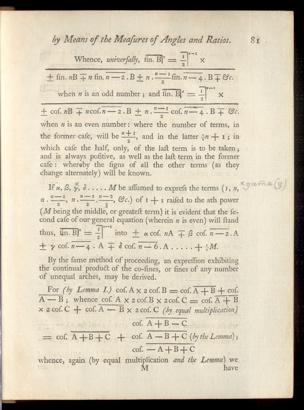 by Means of the Measures of Angles and Ratios. 81
Whence, universally, sin. B|ⁿ = 1/2|ⁿ⁻¹ ×
± sin. nB ∓ n sin. n − 2 . B ± n . (n − 1)/2 sin. n − 4 . B ∓ &c.
when n is an odd number; and sin. B|ⁿ = 1/2|ⁿ⁻¹ ×
± cos. nB ∓ n cos. n − 2 . B ± n . (n − 1)/2 cos. n − 4 . B ∓ &c.
when n is an even number: where the number of terms, in
the former case, will be (n + 1)/2, and in the latter ½n + 1; in
which case the half, only, of the last term is to be taken;
and is always positive, as well as the last term in the former
case: whereby the signs of all the other terms (as they
change alternately) will be known.
If n, β, γ, δ . . . . . M be assumed to express the terms (1, n,
n . (n − 1)/2, n . (n − 1)/2 . (n − 2)/3, &c.) of 1 + 1 raised to the nth power
(M being the middle, or greatest term) it is evident that the se-
cond case of our general equation (wherein n is even) will stand
thus, sin. B|ⁿ = 1/2|ⁿ⁻¹ into ± cos. nA ∓ β cos. n − 2 . A
± γ cos. n − 4 . A ∓ δ cos. n − 6 . A . . . . . + ½M.
By the same method of proceeding, an expression exhibiting
the continual product of the co-sines, or sines of any number
of unequal arches, may be derived.
For (by Lemma I.) cos. A × 2 cos. B = cos. A + B + cos.
A − B; whence cos. A × 2 cos. B × 2 cos. C = cos. A + B
× 2 cos. C + cos. A − B × 2 cos. C (by equal multiplication)
cos. A + B − C
= cos. A + B + C + cos. A − B + C (by the Lemma);
cos. − A + B + C
whence, again (by equal multiplication and the Lemma) we
M have